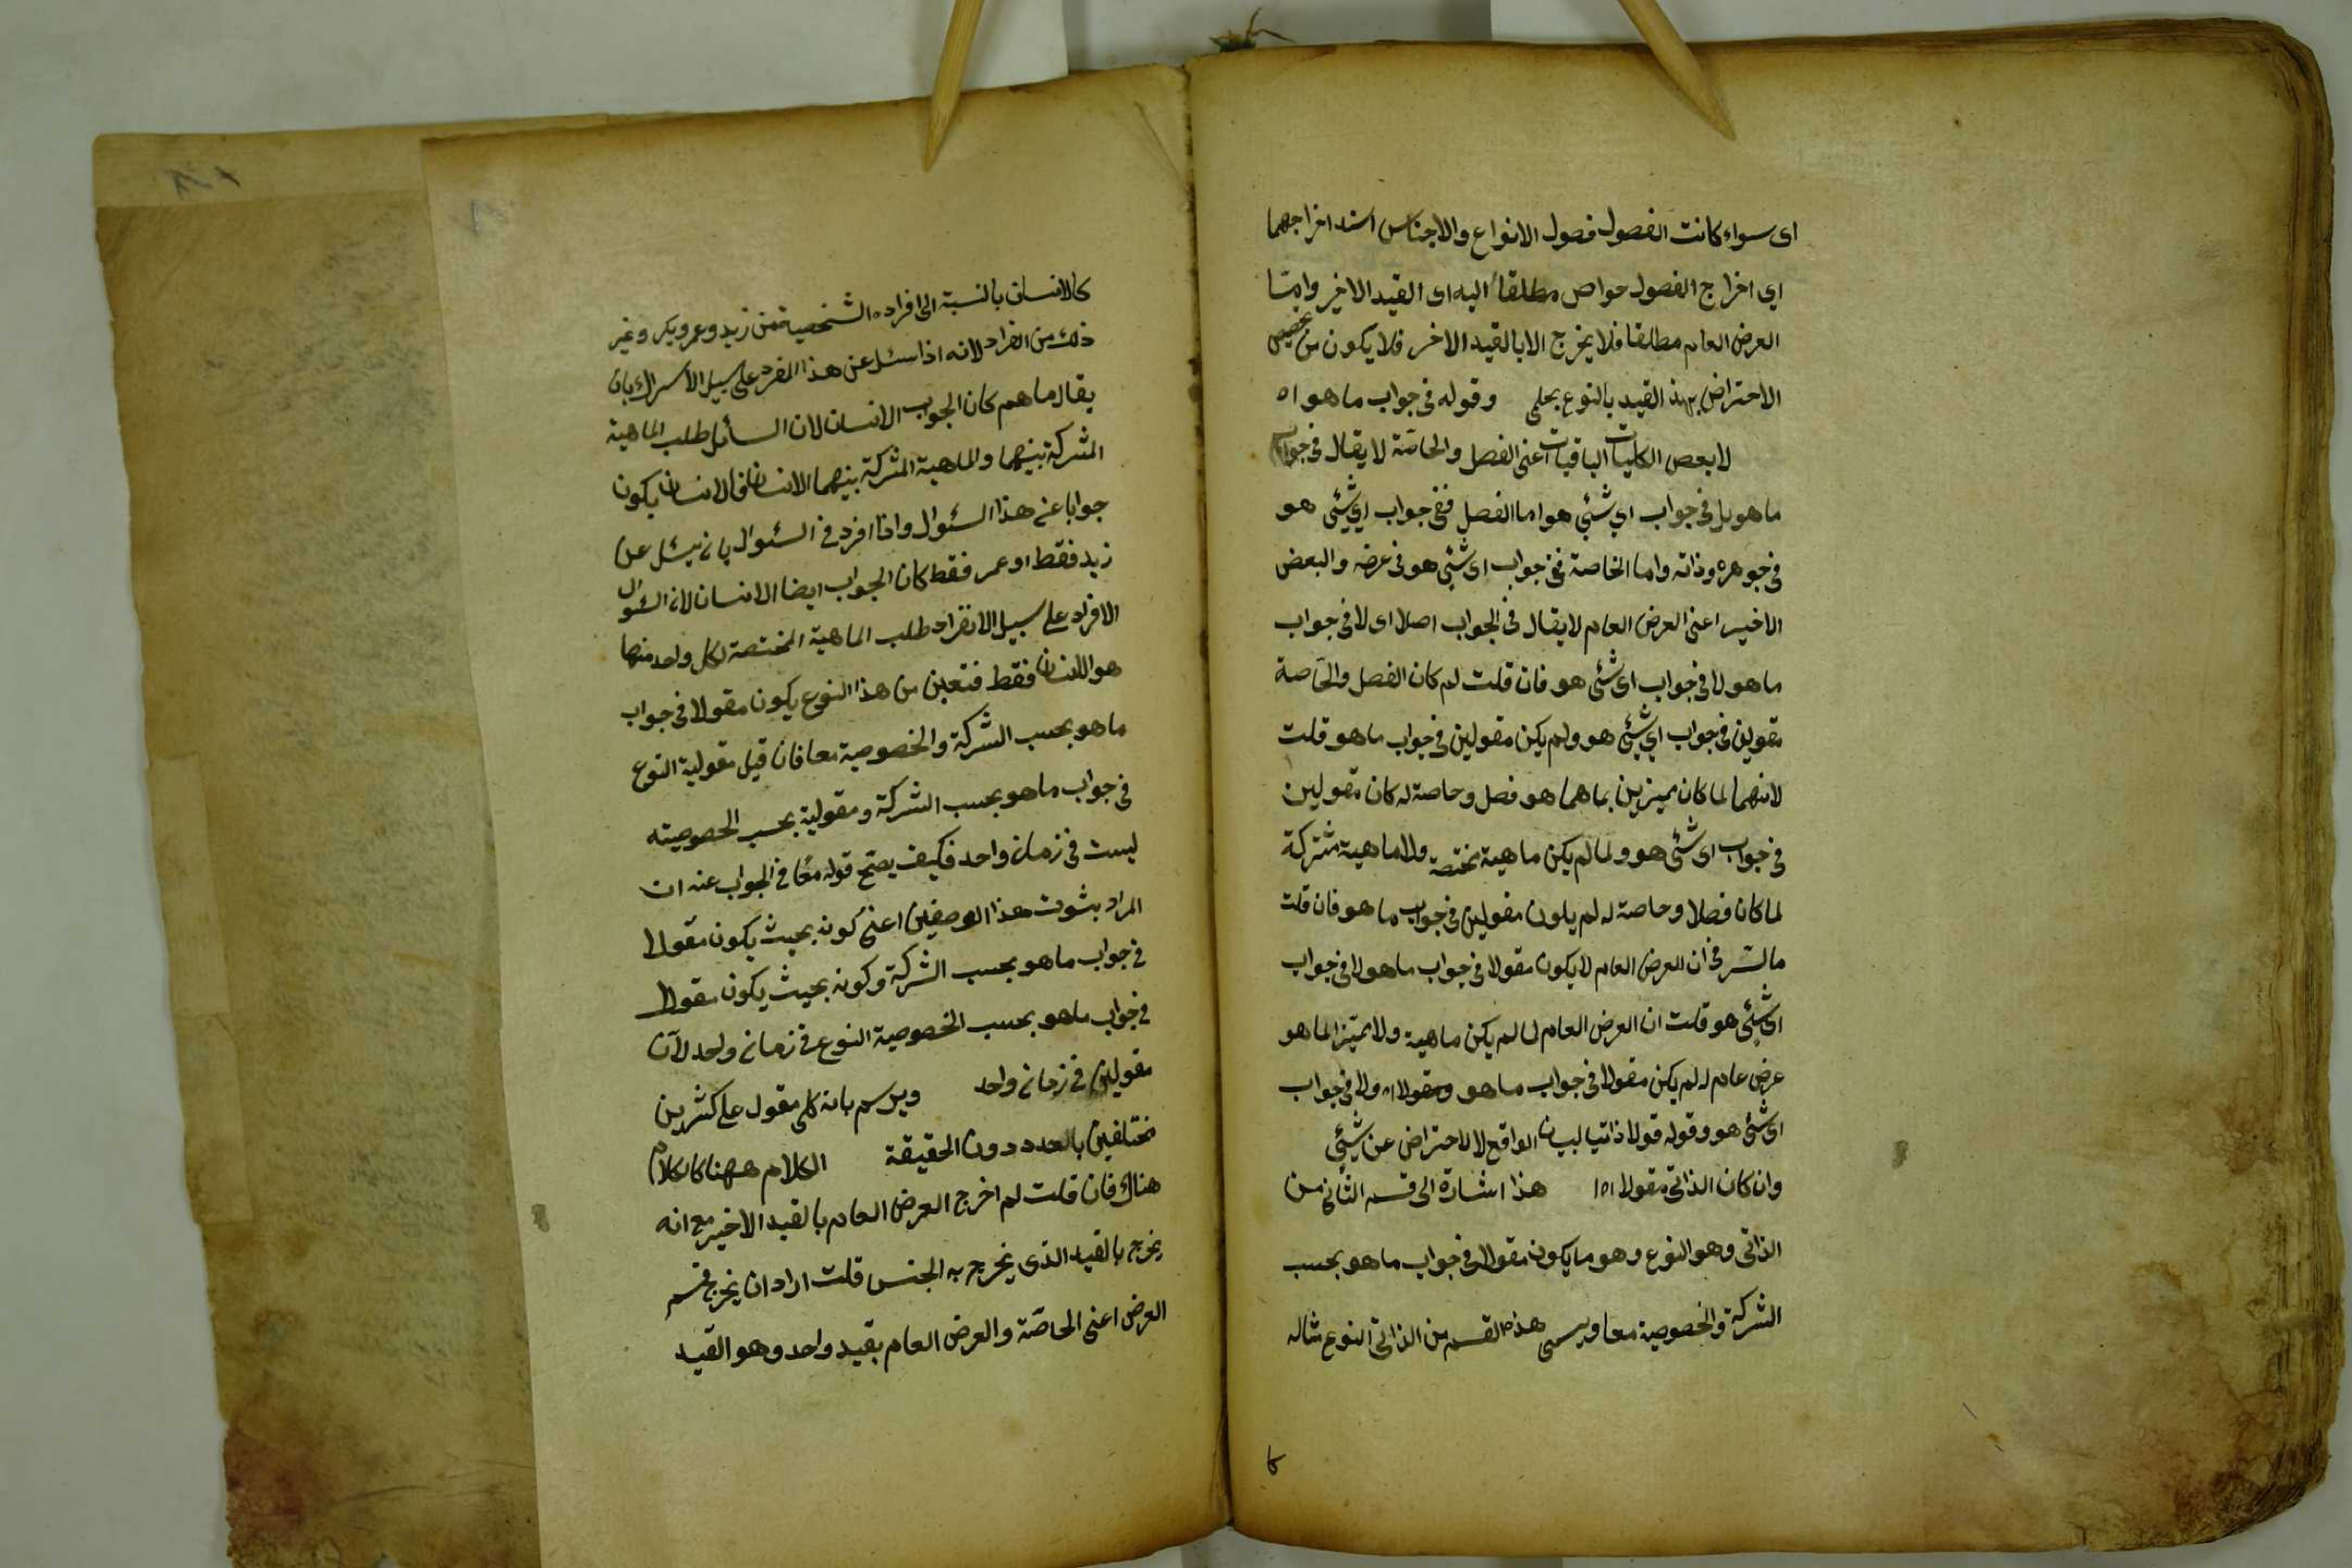 اى سواء كانت الفصول فصول الانواع والاجناس اسند اخراجهما
اي اخراج الفصول حواص مطلقا اليه اى القيد الاخير وامّا
العرض العام مطلقا فلا يخرج الا بالقيد الاخر فلا يكون من تخصيص
الاحتراض بهذ القيد بالنوع بعلمى وقوله فى جواب ما هو اه
لا بعص الكليات الباقيات اعنى الفصل والخاصّة لا يقال فى جواب
ما هو بل فى جواب اي شئي هو اما الفصل ففى جواب اي شئى هو
فى جوهره وذاته واما الخاصة ففى جواب اى شئى هو فى عرضه والبعض
الاخير اعنى العرض العام لا يقال فى الجواب اصلا اى لا فى جواب
ما هو ولا فى جواب اى شئى هو فان قلت لم كان الفصل والخاصة
مقولين فى جواب اي شئى هو ولم يكن مقولين فى جواب ما هو قلت
لانهما لما كان مميزين بما هما هو فصل وحاصة له كان مقولين
فى جواب اى شئى هو ولما لم يكن ماهية مختصة ولا ماهية مشتركة
لما كان فصلا وحاصة له لم يكون مقولين فى جواب ما هو فان قلت
ما السّر فى ان العرض العام لا يكون مقولا فى جواب ما هو ولا فى جواب
اى شئى هو قلت ان العرض العام لما لم يكن ماهية ولا مميّزا لما هو
عرض عام له لم يكن مقولا فى جواب ما هو ومقولا اه ولا فى جواب
اى شئى هو وقوله قولا ذاتيا لبيان الواقع لا للاحتراض عن شئي
وان كان الذاتى مقولا اه هذا اشارة الى قسم الثانى من
الذاتى وهو النوع وهو ما يكون مقولا فى جواب ما هو بحسب
الشركة والخصوصية معا ويسمى هذه القسم من الذاتى النوع مثاله
كالانسان بالنسبة الى افراده الشخصية فمن زيد وعمر وبكر وغير
ذلك من افراد لانه اذا سئل عن هذا المفرد على سبيل الاشراك بان
يقال ما هم كان الجواب الانسان لان السائل طلب الماهية
المشركة بينهما والماهية المشركة بينهما الانسان فالانسان يكون
جوابا عن هذا السئوال واذا افرد فى السئوال بان يسئل عن
زيد فقط او عمر فقط كان الجواب ايضا الانسان لان السئوال
الافراد على سبيل الانفراد طلب الماهية المختصة لكل واحد منها
هو الانسان فقط فتعين من هذا النوع يكون مقولا فى جواب
ما هو بحسب الشركة والخصوصية معا فان قيل مقولية النوع
فى جواب ما هو بحسب الشركة ومقولية بحسب الخصوصيته
ليست فى زمان واحد فكيف يصّح قوله معا فى الجواب عنه ان
المراد بثبوت هذا الوصفين اعنى كونه بحيث يكون مقولا
فى جواب ما هو بحسب الشركة وكونه بحيث يكون مقولا
فى جواب ما هو بحسب الخصوصية النوع فى زمان واحد لا ان
مقولين فى زمان واحد ويرسم بانه كلى مقول على كثرين
مختلفين بالعدد دون الحقيقة الكلام ههنا كالكلام
هناك فان قلت لم اخرج العرض العام بالقيد الاخير مع انه
يخرج بالقيد الذى يخرج به الجنس قلت اراد ان يخرج قسم
العرض اعنى الحاصّة والعرض العام بقيد واحد وهو القيد